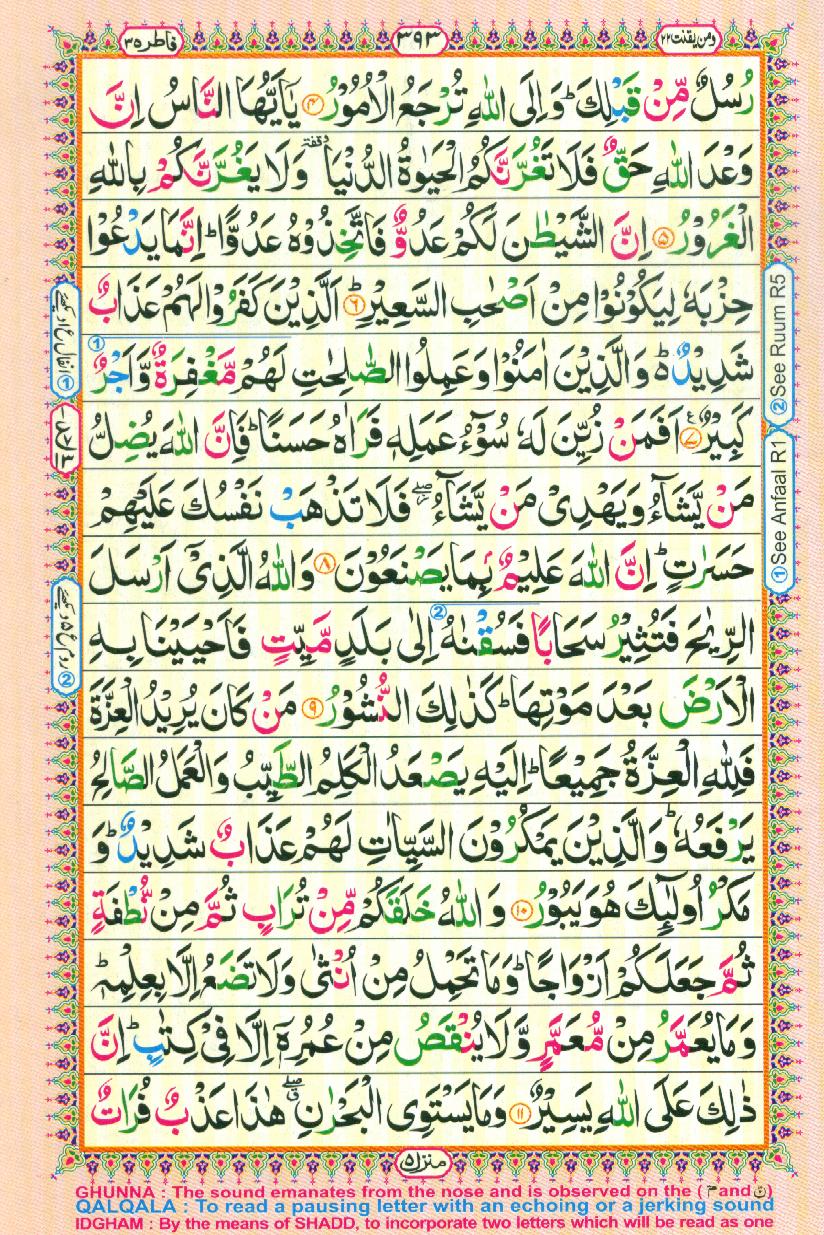 فاطر ۳۵
۳۹۳
ومن یقنت ۲۲
رُسُلٌ مِّنْ قَبْلِكَ ؕ وَ اِلَى اللّٰهِ تُرْجَعُ الْاُمُوْرُ ۴ یٰۤاَیُّهَا النَّاسُ اِنَّ
وَعْدَ اللّٰهِ حَقٌّ فَلَا تَغُرَّنَّكُمُ الْحَیٰوةُ الدُّنْیَا وقفة وَ لَا یَغُرَّنَّكُمْ بِاللّٰهِ
الْغَرُوْرُ ۵ اِنَّ الشَّیْطٰنَ لَكُمْ عَدُوٌّ فَاتَّخِذُوْهُ عَدُوًّا ؕ اِنَّمَا یَدْعُوْا
حِزْبَهٗ لِیَكُوْنُوْا مِنْ اَصْحٰبِ السَّعِیْرِ ؕ ۶ اَلَّذِیْنَ كَفَرُوْا لَهُمْ عَذَابٌ
شَدِیْدٌ ؕ۬ وَ الَّذِیْنَ اٰمَنُوْا وَ عَمِلُوا الصّٰلِحٰتِ لَهُمْ مَّغْفِرَةٌ وَّ اَجْرٌ ①
كَبِیْرٌ ۷ ع اَفَمَنْ زُیِّنَ لَهٗ سُوْٓءُ عَمَلِهٖ فَرَاٰهُ حَسَنًا ؕ فَاِنَّ اللّٰهَ یُضِلُّ
مَنْ یَّشَآءُ وَ یَهْدِیْ مَنْ یَّشَآءُ ۖؗ فَلَا تَذْهَبْ نَفْسُكَ عَلَیْهِمْ
حَسَرٰتٍ ؕ اِنَّ اللّٰهَ عَلِیْمٌۢ بِمَا یَصْنَعُوْنَ ۸ وَ اللّٰهُ الَّذِیْۤ اَرْسَلَ
الرِّیٰحَ فَتُثِیْرُ سَحَابًا فَسُقْنٰهُ ② اِلٰى بَلَدٍ مَّیِّتٍ فَاَحْیَیْنَا بِهِ
الْاَرْضَ بَعْدَ مَوْتِهَا ؕ كَذٰلِكَ النُّشُوْرُ ۹ مَنْ كَانَ یُرِیْدُ الْعِزَّةَ
فَلِلّٰهِ الْعِزَّةُ جَمِیْعًا ؕ اِلَیْهِ یَصْعَدُ الْكَلِمُ الطَّیِّبُ وَ الْعَمَلُ الصَّالِحُ
یَرْفَعُهٗ ؕ وَ الَّذِیْنَ یَمْكُرُوْنَ السَّیِّاٰتِ لَهُمْ عَذَابٌ شَدِیْدٌ ؕ وَ
مَكْرُ اُولٰٓىِٕكَ هُوَ یَبُوْرُ ۱۰ وَ اللّٰهُ خَلَقَكُمْ مِّنْ تُرَابٍ ثُمَّ مِنْ نُّطْفَةٍ
ثُمَّ جَعَلَكُمْ اَزْوَاجًا ؕ وَ مَا تَحْمِلُ مِنْ اُنْثٰى وَ لَا تَضَعُ اِلَّا بِعِلْمِهٖ ؕ
وَ مَا یُعَمَّرُ مِنْ مُّعَمَّرٍ وَّ لَا یُنْقَصُ مِنْ عُمُرِهٖۤ اِلَّا فِیْ كِتٰبٍ ؕ اِنَّ
ذٰلِكَ عَلَى اللّٰهِ یَسِیْرٌ ۱۱ وَ مَا یَسْتَوِی الْبَحْرٰنِ ۖۗ هٰذَا عَذْبٌ فُرَاتٌ
① See Anfaal R1
② See Ruum R5
① انفال ع۱ دیکھئے
② روم ع۵ دیکھئے
منزل ۵
GHUNNA : The sound emanates from the nose and is observed on the ( مّ and نّ )
QALQALA : To read a pausing letter with an echoing or a jerking sound
IDGHAM : By the means of SHADD, to incorporate two letters which will be read as one